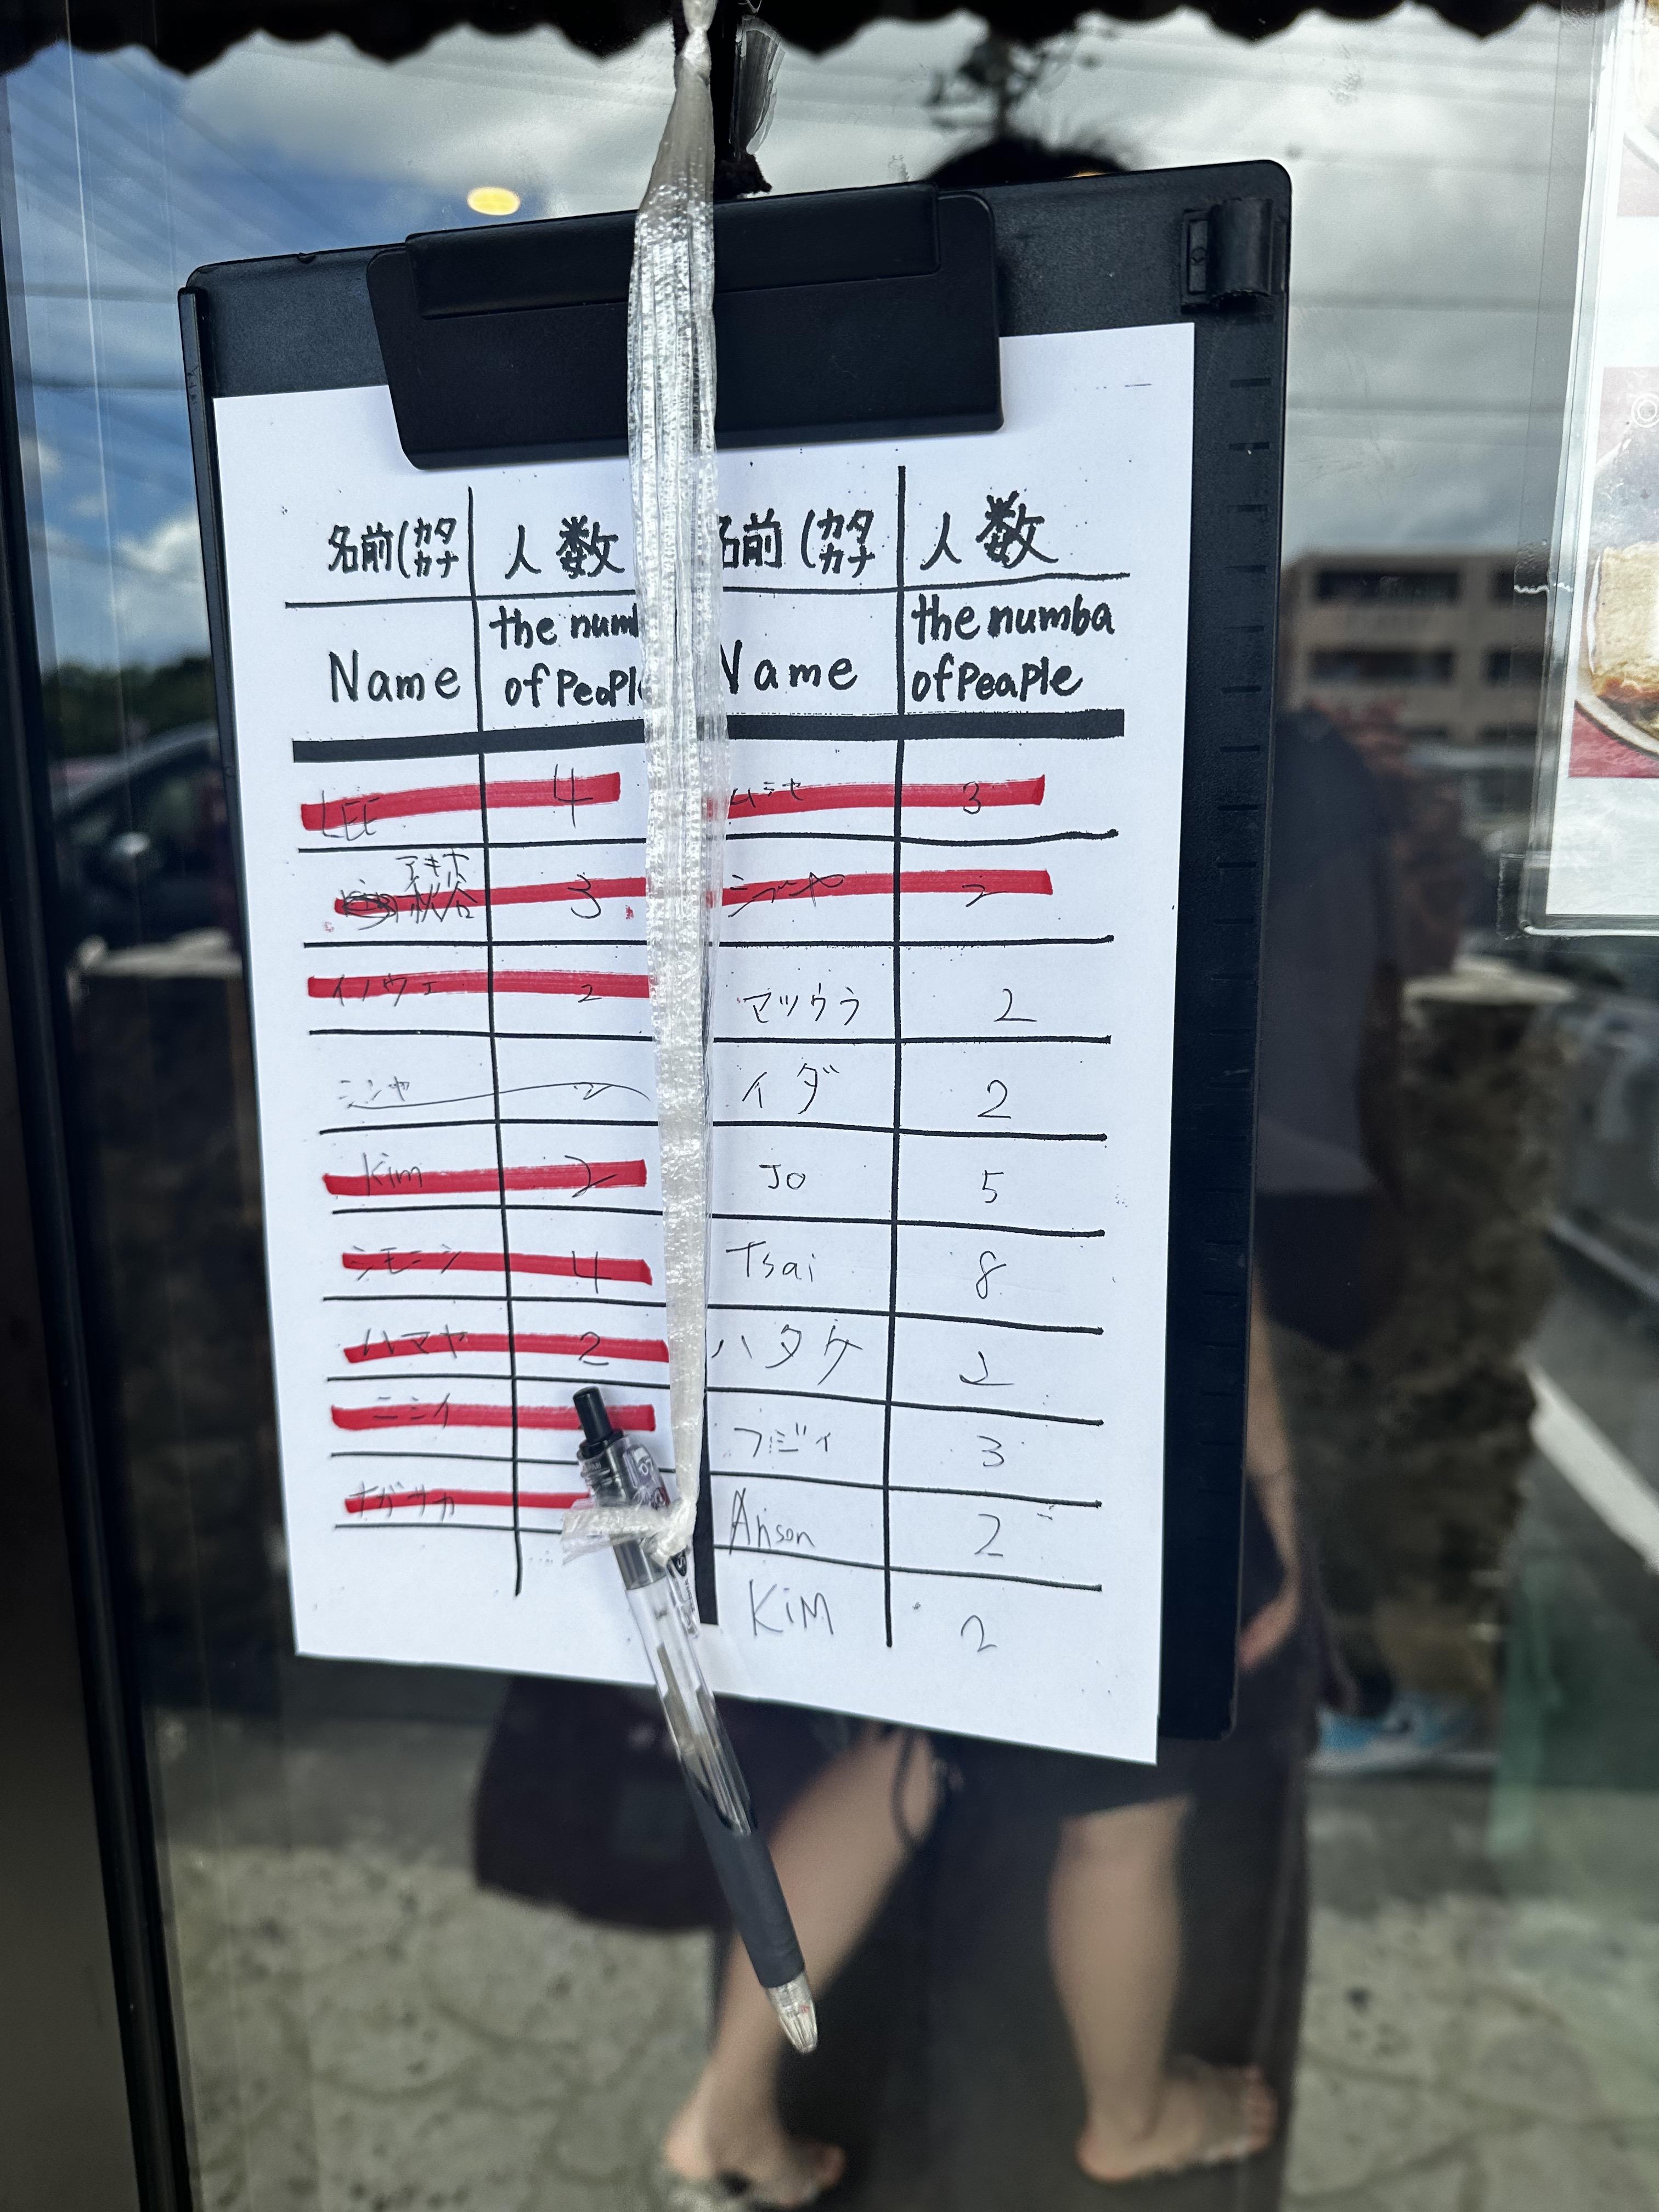 名前(カタカナ 人数 名前(カタカナ 人数
Name the numb of PeoPl Name the numba of PeaPle
LEE 4 ムラセ 3
アキホ
秋谷 3 シブヤ 2
イノウエ 2 マツウラ 2
ミシヤ 2 イダ 2
Kim 2 JO 5
シモニシ 4 Tsai 8
ハマヤ 2 ハタケ 2
ニシイ フジイ 3
ナガサカ 2
KiM 2